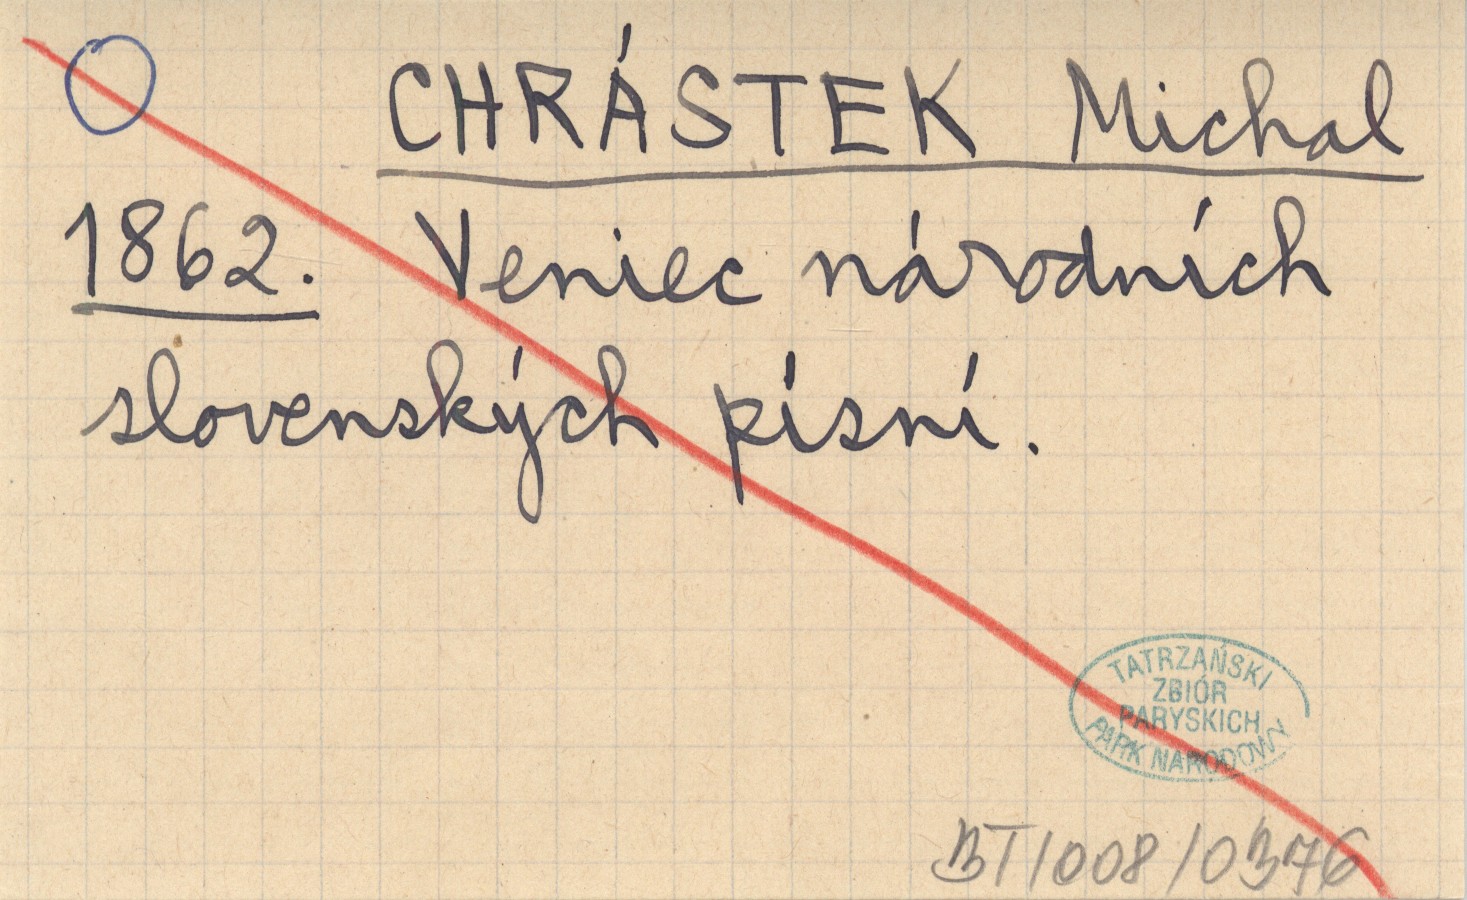 CHRÁSTEK Michal
1862. Veniec národních
slovenských písní.
TATRZAŃSKI
ZBIÓR
PARYSKICH
PARK NARODOWY
BT/008/0376